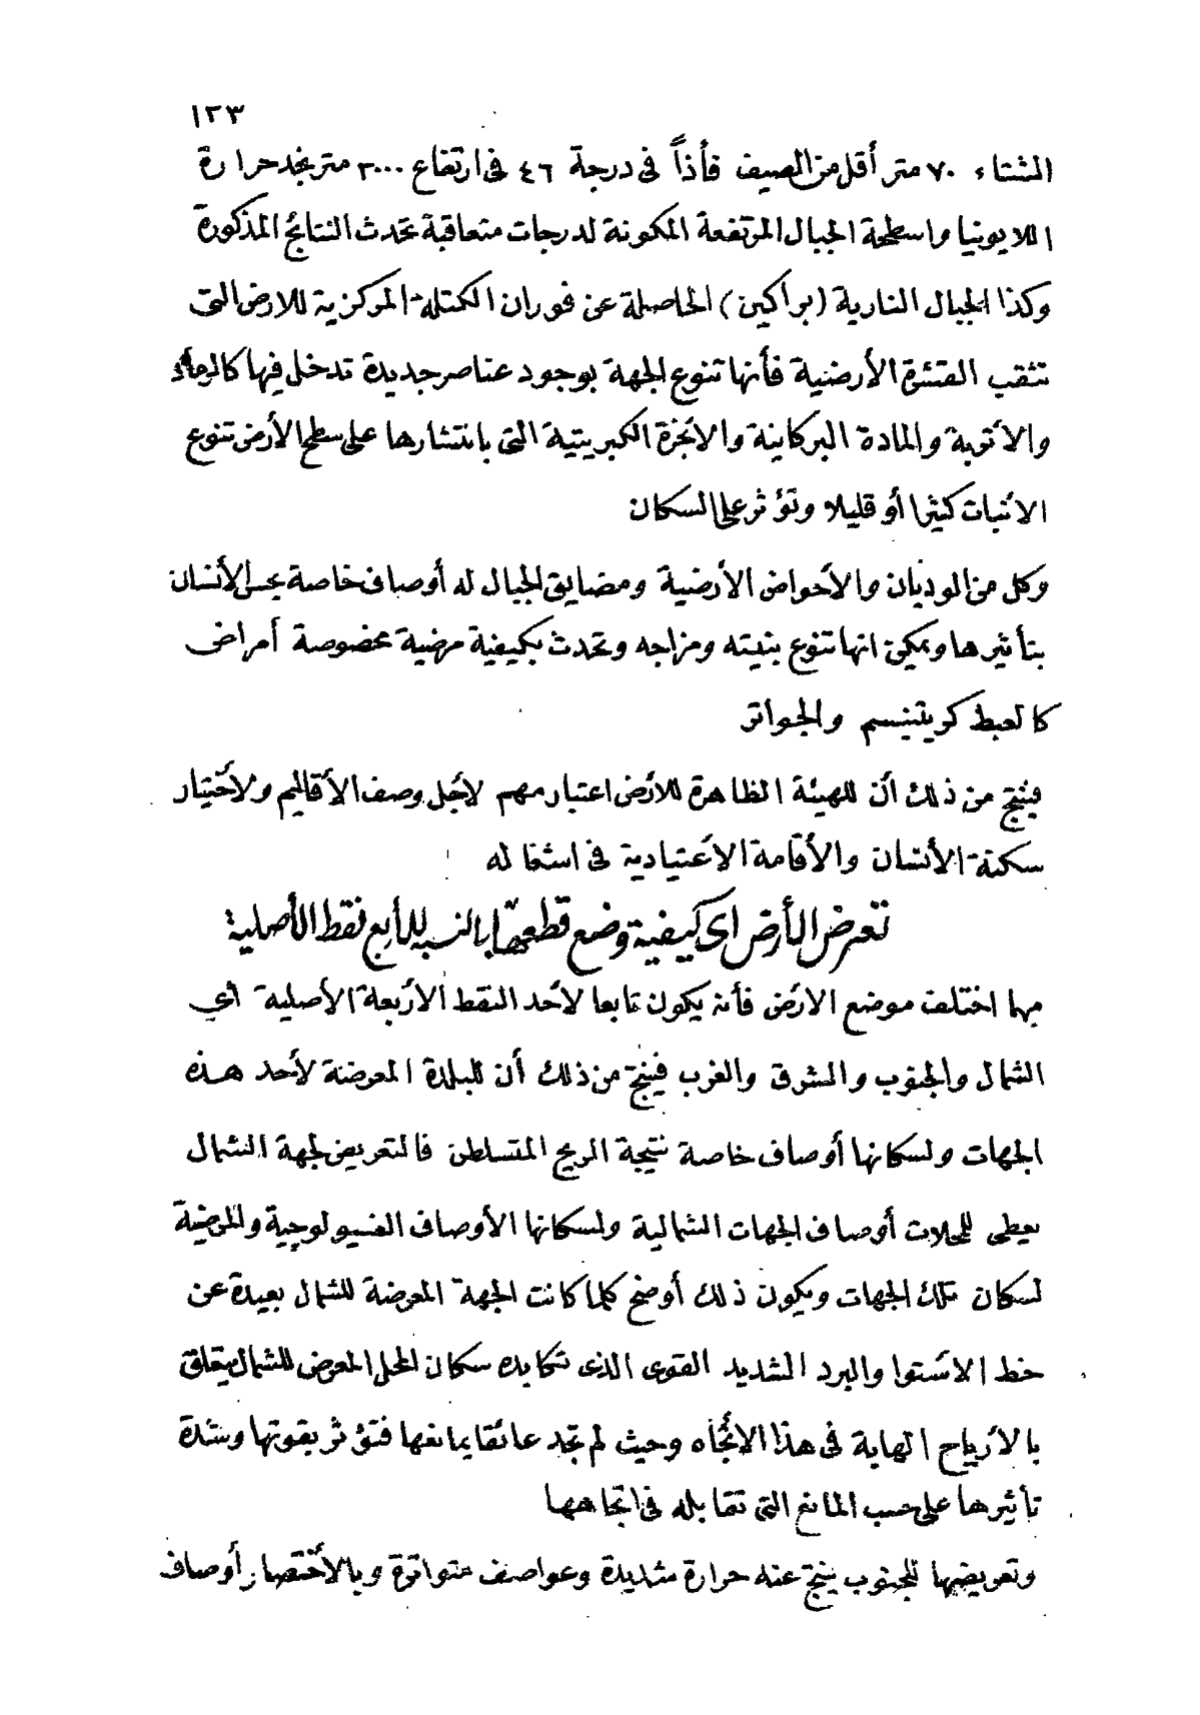 ١٢٣
الشتاء ٧٠ متر أقل من الصيف فأذاً فى درجة ٤٦ فى ارتفاع ٣٠٠٠ متر نجد حرارة
اللايونيا واسطحة الجبال المرتفعة المكونة لدرجات متعاقبة تحدث النتائج المذكورة
وكذا الجبال النارية (براكين) الحاصلة عن فوران الكتلة المركزية للارض التى
تثقب القشرة الأرضنية فأنها تنوع الجهة بوجود عناصر جديدة تدخل فيها كالرماد
والأتوبة والمادة البركاينة والابخرة الكبريتية التى بانتشارها على سطح الأرض تنوع
الانبات كثيرا أو قليلا وتؤثر على السكان
وكل من الوديان والأحواض الأرضية ومضايق الجبال له أوصاف خاصة يحس الأنسان
بتأثيرها ويمكن انها تنوع بنيته ومزاجه وتحدث بكيفية مرضية مخصوصة أمراض
كالعبط كريتنيسم والجواتر
فينتج من ذلك أن للهيئة الظاهرة للارض اعتبار مهم لاجل وصف الأقاليم ولاختيار
سكنة الأنسان والأقامة الاعتيادية فى اشغاله
تعرض الأرض اى كيفية وضع قطعها بالنسبه للأربع نقط الأصلية
مهما اختلف موضع الارض فأنه يكون تابعا لأحد النقط الاربعة الأصلية أي
الشمال والجنوب والشرق والغرب فينتج من ذلك أن للبلدة المعرضة لأحد هذه
الجهات ولسكانها أوصاف خاصة نتيجة الريح المتسلطن فالتعريض لجهة الشمال
يعطى للمحلات أوصاف الجهات الشمالية ولسكانها الأوصاف الفسيولوجية والمرضية
لسكان تلك الجهات ويكون ذلك أوضح كلما كانت الجهة المعرضة للشمال بعيدة عن
خط الاستوا والبرد الشديد القوى الذى تكابده سكان المحل المعرض للشمال يتعلق
بالأرياح الهابة فى هذا الاتجاه وحيث لم تجد عائقا يمانعها فتؤثر بقوتها وشدة
تأثيرها على حسب المانع التى تقابله فى اتجاهها
وتعريضها للجنوب ينتج عنه حرارة شديدة وعواصف متواترة وبالأختصار أوصاف